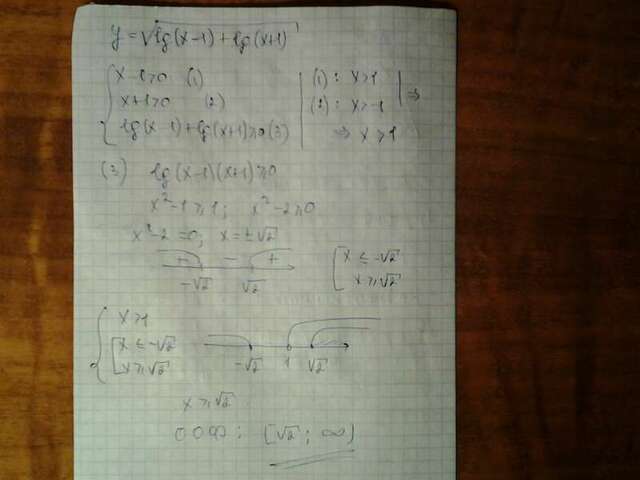 y = √lg(x-1) + lg(x+1)
{ x-1>0 (1)
x+1>0 (2)
lg(x-1)+lg(x+1)≥0 (3)
(1): x>1
(2): x>-1 ⇒
⇒ x>1
(3) lg(x-1)(x+1)≥0
x²-1≥1; x²-2≥0
x²-2=0; x=±√2
+ - +
-√2 √2
[ x≤-√2
x≥√2
{ x>1
[ x≤-√2
x≥√2
-√2 1 √2
x≥√2
[√2; ∞)